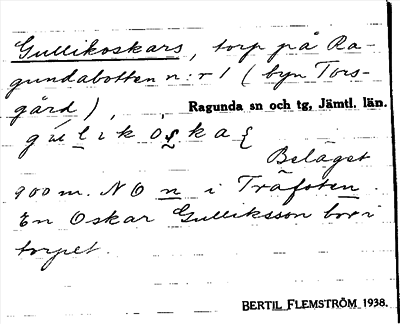 Gullikoskars, torp på Ra-
gundabotten n:r 1 (byn Tors-
gård),
Ragunda sn och tg, Jämtl. län.
Beläget
900 m. NO n i
En Oskar Gulliksson bor i
torpet.
BERTIL FLEMSTRÖM 1938.